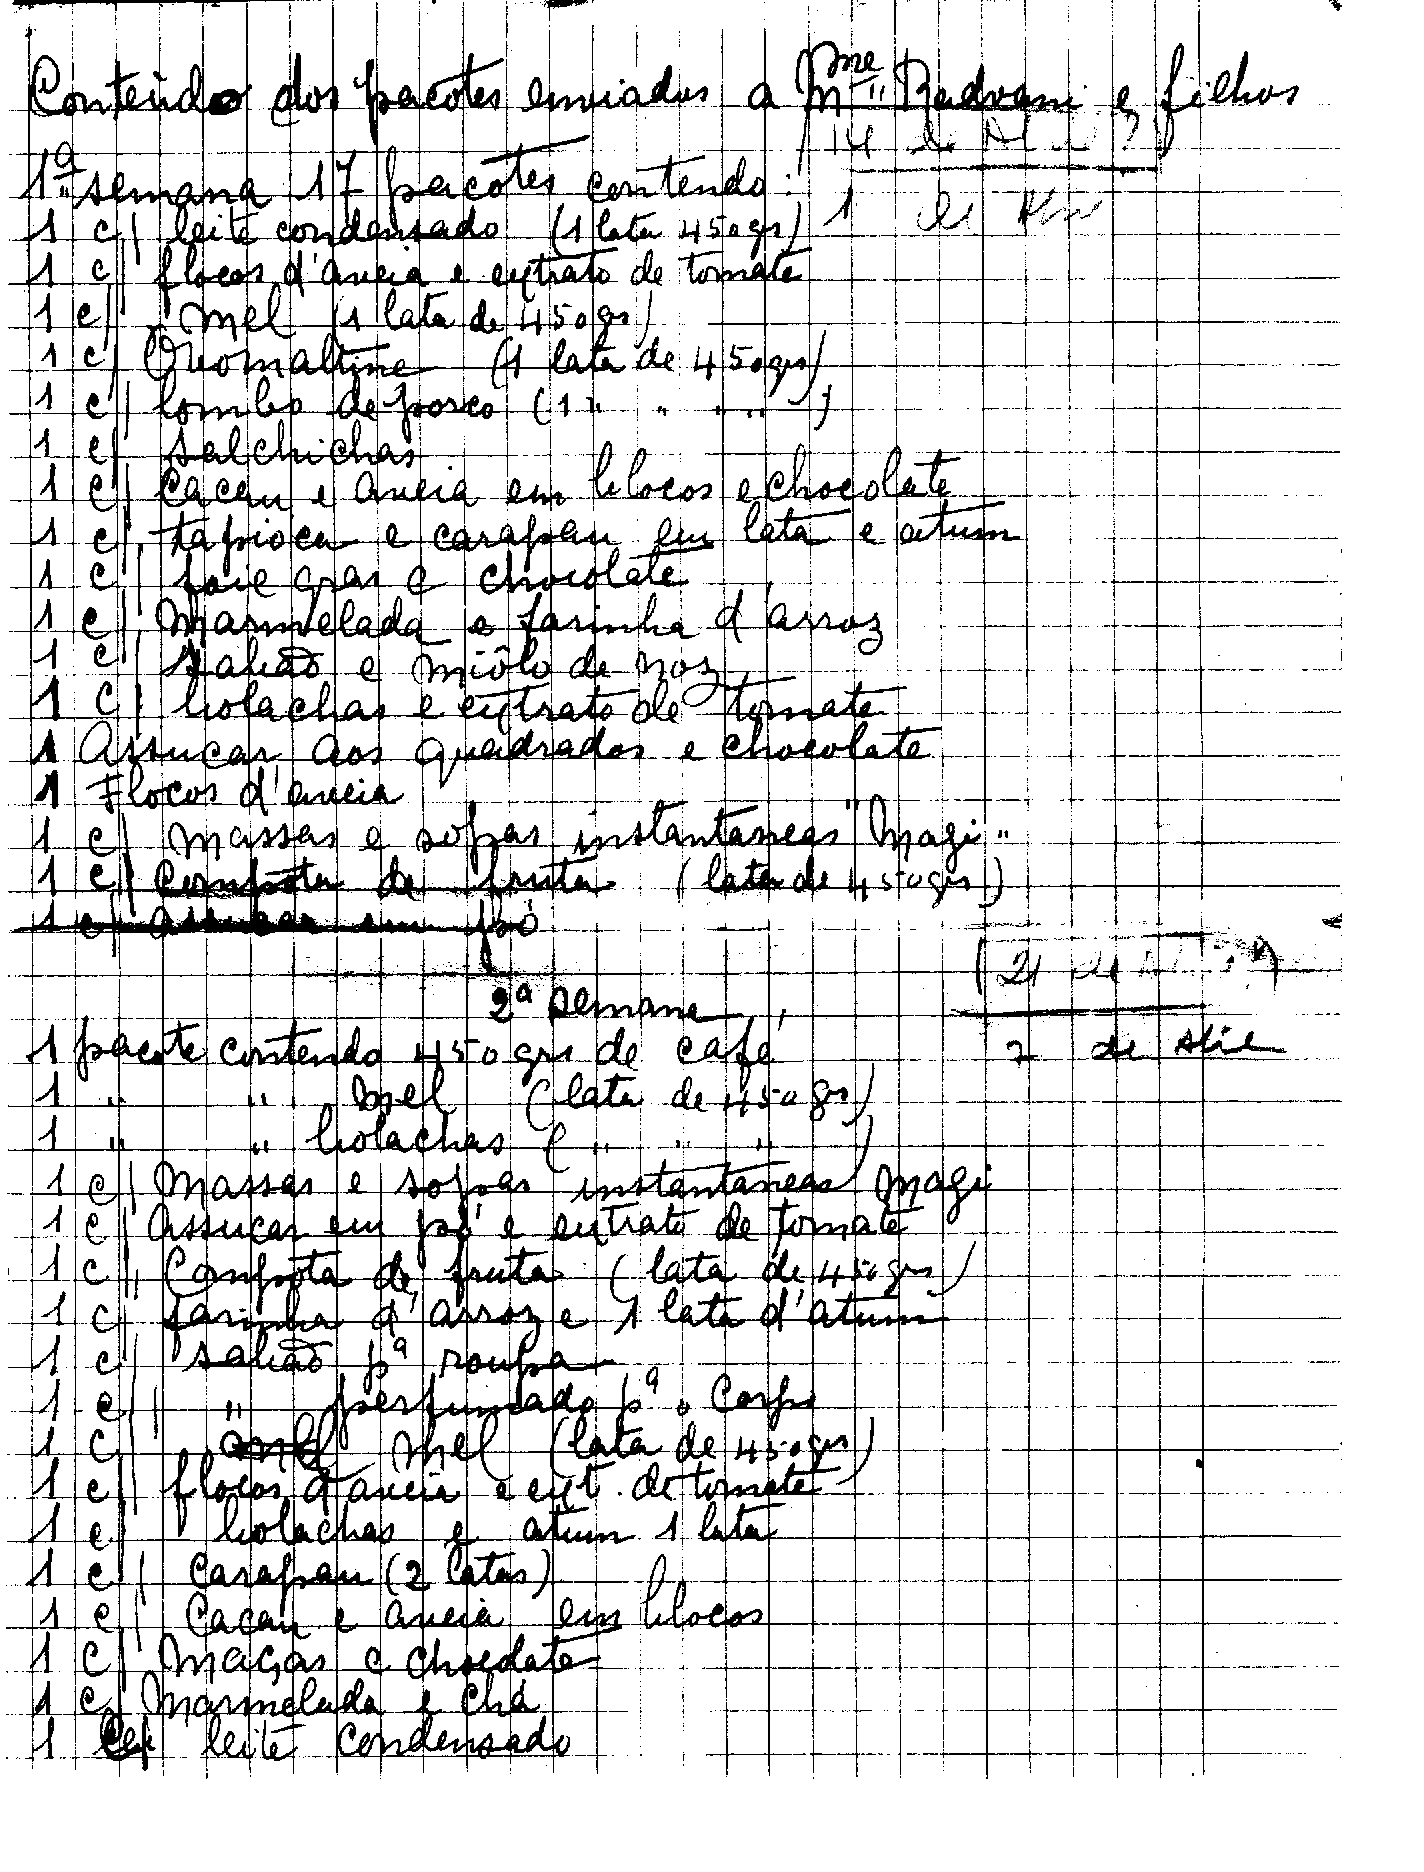 Conteúdo dos pacotes enviados a Mme Radvani e filhos
14 de
1ª semana 17 pacotes contendo:
1 c/ leite condensado (1 lata 450grs) 1 de
1 c/ flocos d'aveia e extrato de tomate
1 c/ Mel (1 lata de 450grs)
1 c/ Ovomaltine (1 lata de 450grs)
1 c/ lombo de porco (1 " " " ")
1 c/ salchichas
1 c/ Cacau e aveia em blocos e chocolate
1 c/ tapioca e carapau em lata e atum
1 c/ foie gras e chocolate
1 c/ Marmelada e farinha d'arroz
1 c/ sabão e miôlo de noz
1 c/ bolachas e extrato de tomate
1 Assucar aos quadrados e chocolate
1 Flocos d'aveia
1 c/ Massas e sopas instantaneas "Magi"
1 c/ Compota de fruta (lata de 450grs)
1 c/ Assucar em pó
(21 de
2ª semana
1 pacote contendo 450grs de café 7 de
1 " " Mel (lata de 450grs)
1 " " bolachas ( " " " )
1 c/ Massas e sopas instantaneas Magi
1 c/ Assucar em pó e extrato de tomate
1 c/ Compota de fruta (lata de 450grs)
1 c/ farinha d'arroz e 1 lata d'atum
1 c/ sabão pª roupa
1 c/ " perfumado pª o Corpo
1 c/ mel Mel (lata de 450grs)
1 c/ flocos d'aveia e ext. de tomate
1 c/ bolachas e atum 1 lata
1 c/ Carapau (2 latas)
1 c/ Cacau e aveia em blocos
1 c/ Maçãs e chocolate
1 c/ Marmelada e chá
1 c/ leite condensado